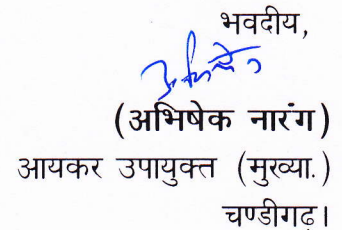 भवदीय,
अभिषेक
(अभिषेक नारंग)
आयकर उपायुक्त (मुख्या.)
चण्डीगढ़।